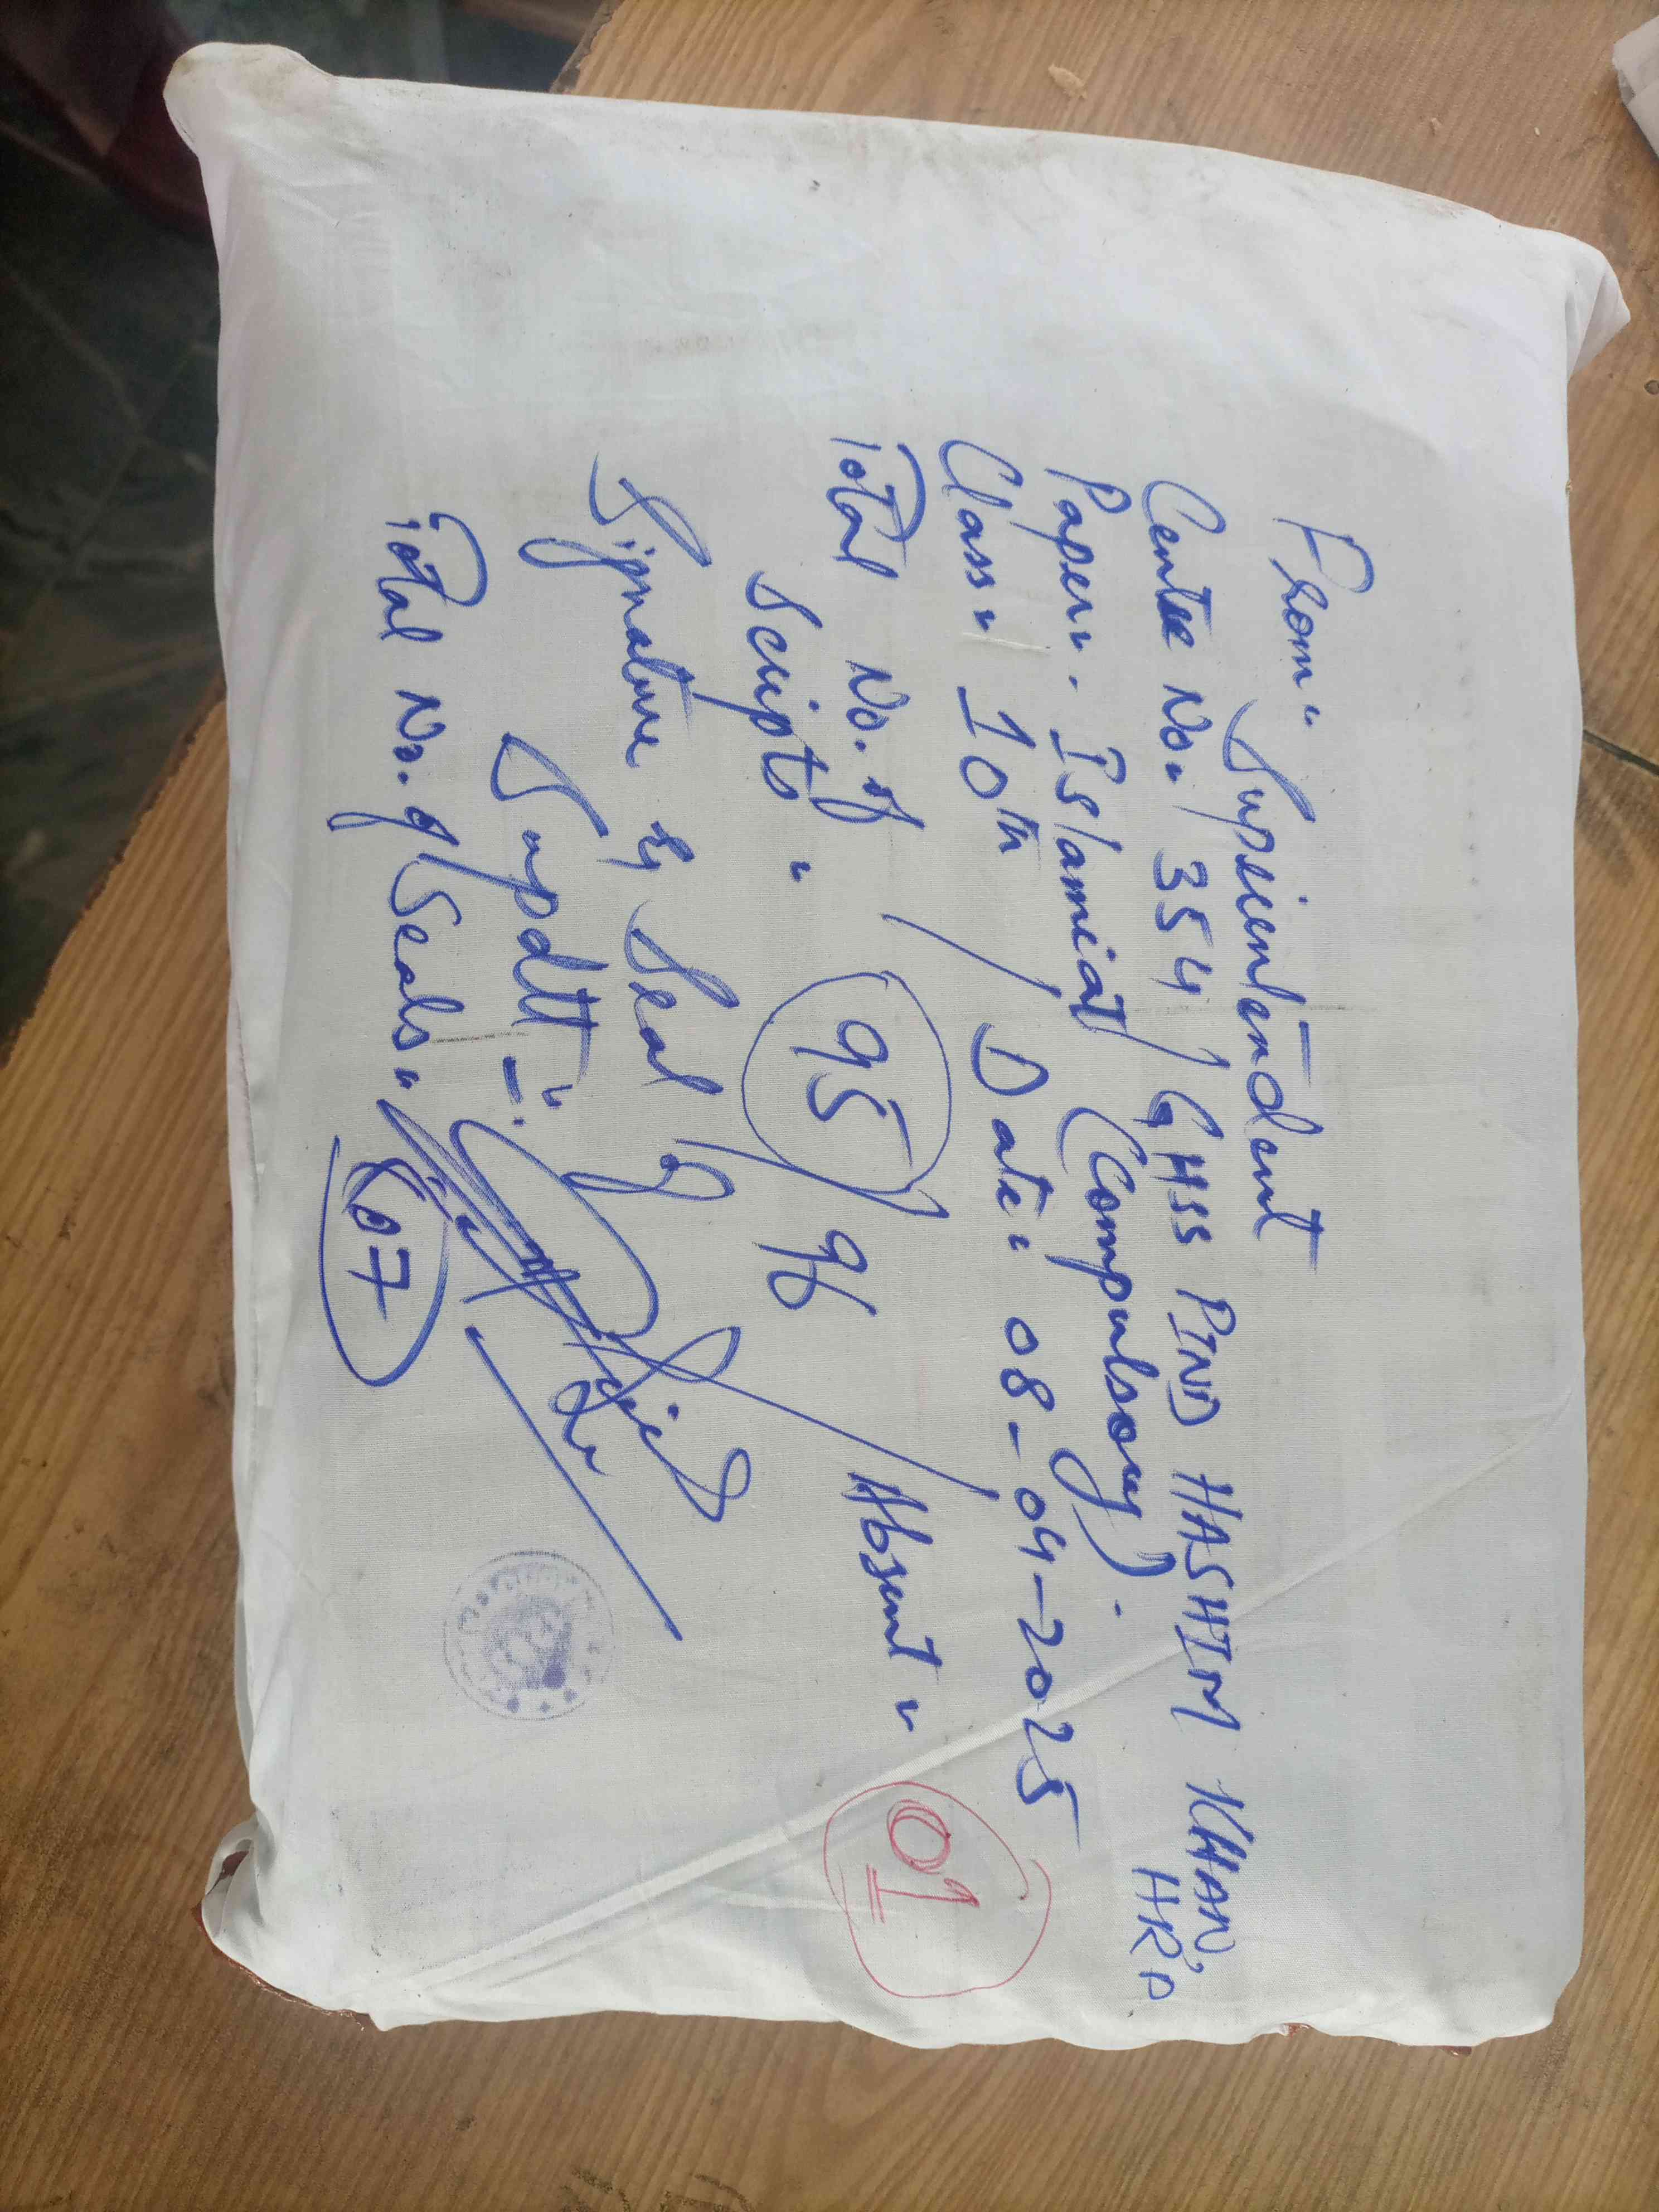 From:-
Supeientendent
Centre No: 354 / GHSS PIND HASHIM KHAN, HR'P
Paper:- Islamiat (Compulsory).
Class:- 10th / Date:- 08-04-2025
Total No. of Scripts:- 95 / 96 / Absent:- 01
Signature & Seal of
Supdtt:-
Total No. of Seals:- 07